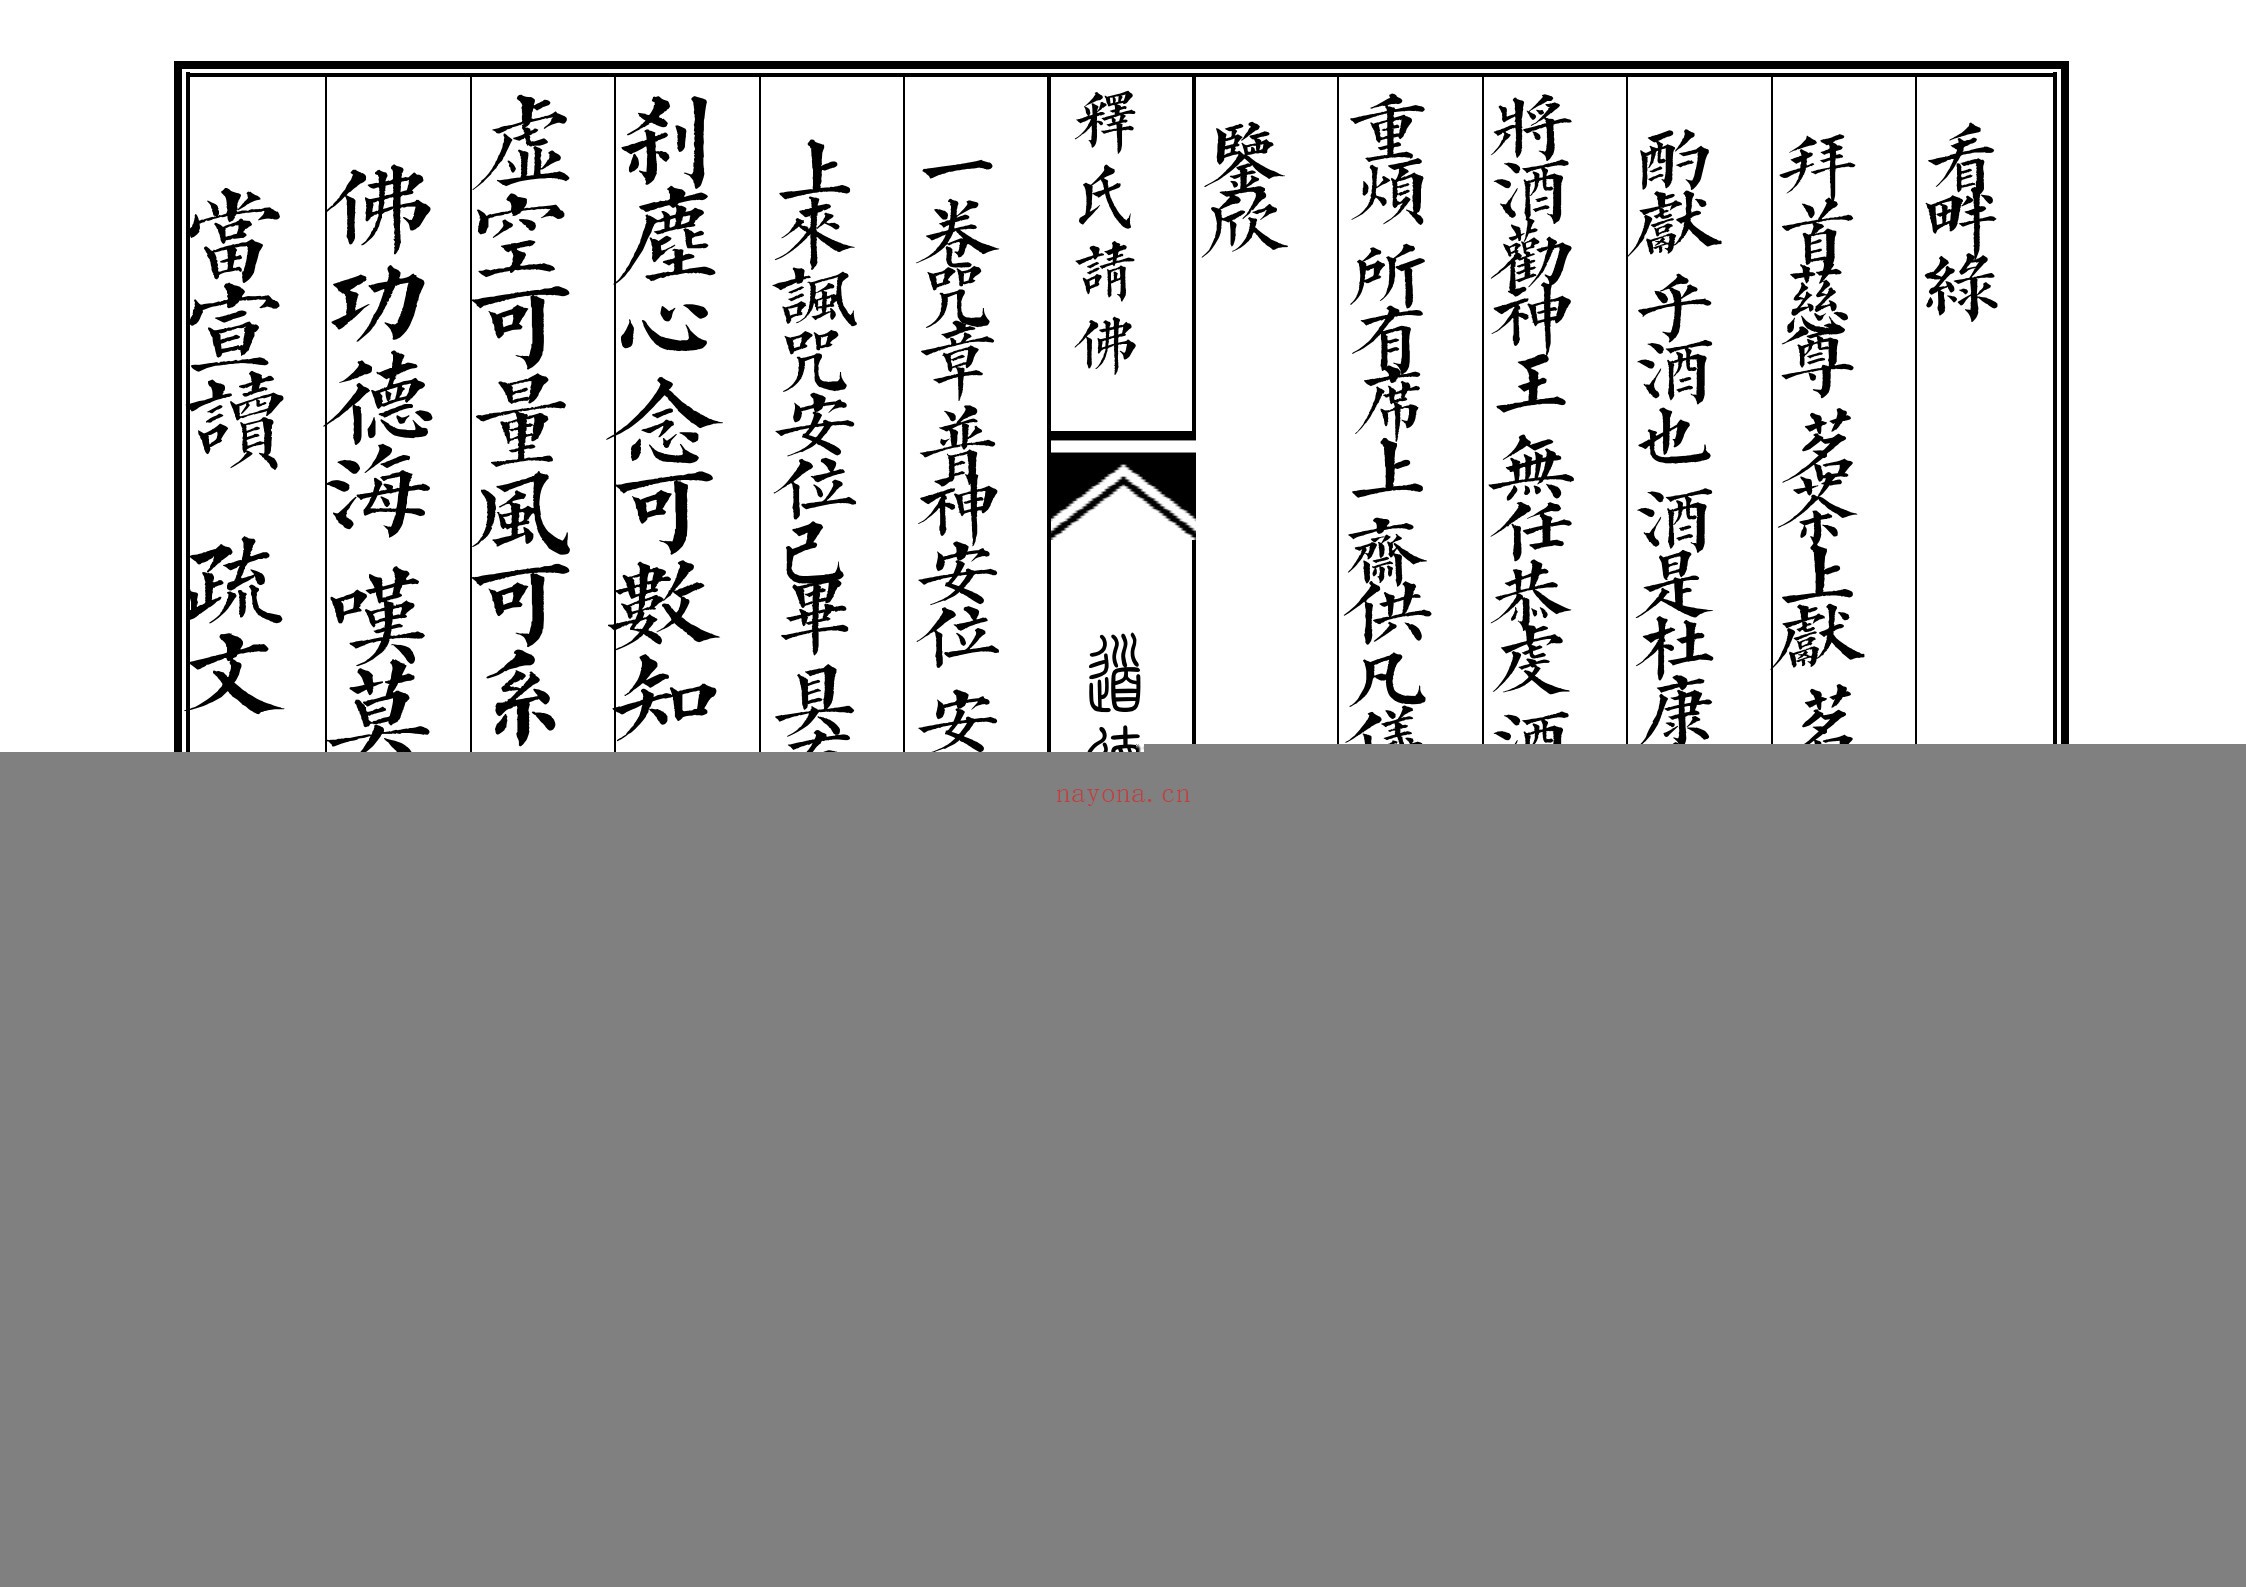 看畔綠
拜首慈尊 茗茶上獻 茗
酌獻 乎酒也 酒是杜康
將酒勸神王 無任恭虔 酒
重煩 所有席上 齋供凡儀
鑒欣
釋氏請佛
道德
一卷咒章普神安位 安
上來諷咒安位已畢 具有
刹塵心念可數知
虛空可量風可系
佛功德海 嘆莫
當宣讀 疏文
nayona.cn